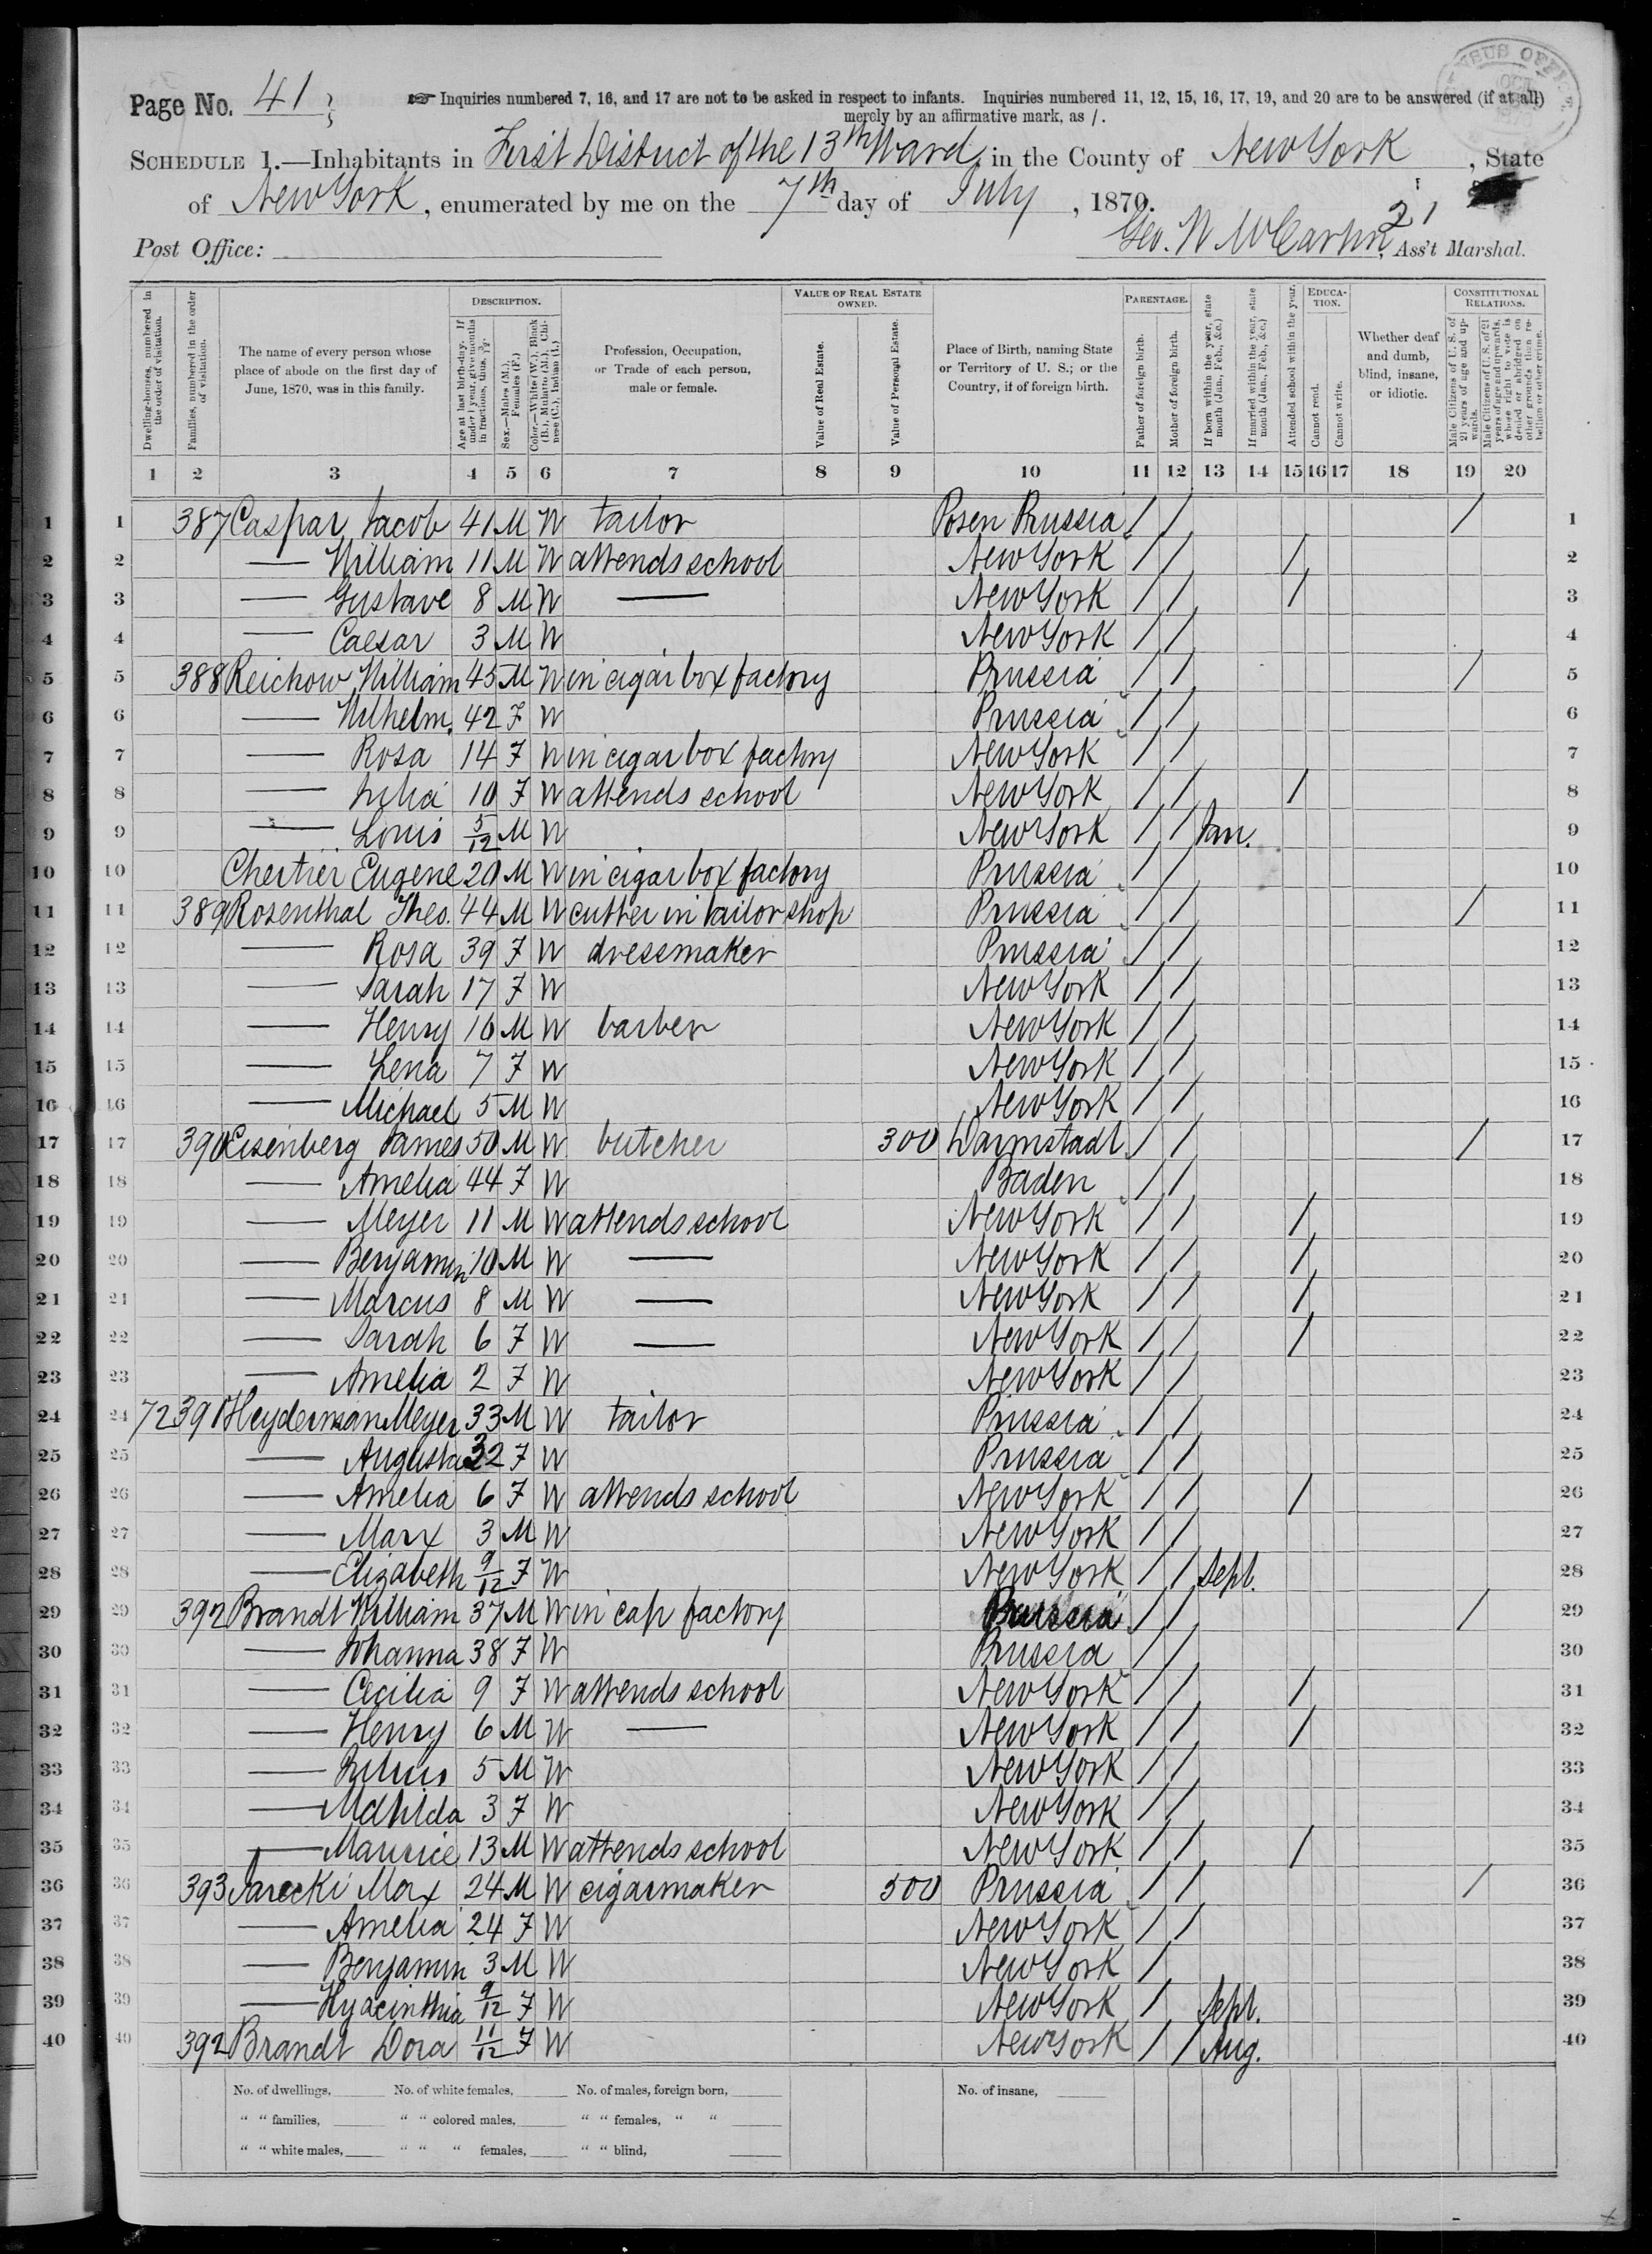 Page No. 41
☞ Inquiries numbered 7, 16, and 17 are not to be asked in respect to infants. Inquiries numbered 11, 12, 15, 16, 17, 19, and 20 are to be answered (if at all)
merely by an affirmative mark, as /.
SCHEDULE 1.—Inhabitants in First District of the 13th Ward, in the County of New York, State
of New York, enumerated by me on the 7th day of July, 1870.
21
Post Office: Geo. W McCarthy, Ass't Marshal.
DESCRIPTION. VALUE OF REAL ESTATE OWNED. PARENTAGE. EDUCATION. CONSTITUTIONAL RELATIONS.
Dwelling-houses, numbered in the order of visitation.
Families, numbered in the order of visitation.
The name of every person whose place of abode on the first day of June, 1870, was in this family.
Age at last birth-day. If under 1 year, give months in fractions, thus, 3/12.
Sex.—Males (M.), Females (F.)
Color.—White (W.), Black (B.), Mulatto (M.), Chinese (C.), Indian (I.)
Profession, Occupation, or Trade of each person, male or female.
Value of Real Estate.
Value of Personal Estate.
Place of Birth, naming State or Territory of U. S.; or the Country, if of foreign birth.
Father of foreign birth.
Mother of foreign birth.
If born within the year, state month (Jan., Feb., &c.)
If married within the year, state month (Jan., Feb., &c.)
Attended school within the year.
Cannot read.
Cannot write.
Whether deaf and dumb, blind, insane, or idiotic.
Male Citizens of U. S. of 21 years of age and upwards.
Male Citizens of U. S. of 21 years of age and upwards, whose right to vote is denied or abridged on other grounds than rebellion or other crime.
1 2 3 4 5 6 7 8 9 10 11 12 13 14 15 16 17 18 19 20
1 387 Caspar, Jacob 41 M W tailor Posen Prussia / / / 1
2 — William 11 M W attends school New York / / / 2
3 — Gustave 8 M W — New York / / / 3
4 — Caesar 3 M W New York / / 4
5 388 Reichow, William 45 M W in cigar box factory Prussia / / / 5
6 — Wilhelm. 42 F W Prussia / / 6
7 — Rosa 14 F W in cigar box factory New York / / 7
8 — Julia 10 F W attends school New York / / / 8
9 — Louis 5/12 M W New York / / Jan. 9
10 Chertier Eugene 20 M W in cigar box factory Prussia / / 10
11 389 Rosenthal Theo. 44 M W cutter in tailor shop Prussia / / / 11
12 — Rosa 39 F W dressmaker Prussia / / 12
13 — Sarah 17 F W New York / / 13
14 — Henry 16 M W barber New York / / 14
15 — Lena 7 F W New York / / 15
16 — Michael 5 M W New York / / 16
17 390 Eisenberg James 50 M W butcher 300 Darmstadt / / / 17
18 — Amelia 44 F W Baden / / 18
19 — Meyer 11 M W attends school New York / / / 19
20 — Benjamin 10 M W — New York / / / 20
21 — Marcus 8 M W — New York / / / 21
22 — Sarah 6 F W — New York / / / 22
23 — Amelia 2 F W New York / / 23
24 72 391 Heyderman Meyer 33 M W tailor Prussia / / 24
25 — Augusta 32 F W Prussia / / 25
26 — Amelia 6 F W attends school New York / / / 26
27 — Marx 3 M W New York / / 27
28 — Elizabeth 9/12 F W New York / / Sept. 28
29 392 Brandt William 37 M W in cap factory Prussia / / / 29
30 — Johanna 38 F W Prussia / / 30
31 — Cecilia 9 F W attends school New York / / / 31
32 — Henry 6 M W — New York / / / 32
33 — Julius 5 M W New York / / 33
34 — Mathilda 3 F W New York / / 34
35 — Maurice 13 M W attends school New York / / / 35
36 393 Jarecki Max 24 M W cigarmaker 500 Prussia / / / 36
37 — Amelia 24 F W New York / / 37
38 — Benjamin 3 M W New York / 38
39 — Hyacinthia 9/12 F W New York / Sept. 39
40 392 Brandt Dora 11/12 F W New York / / Aug. 40
No. of dwellings, No. of white females, No. of males, foreign born, No. of insane,
" " families, " " colored males, " " females, " "
" " white males, " " " females, " " blind,